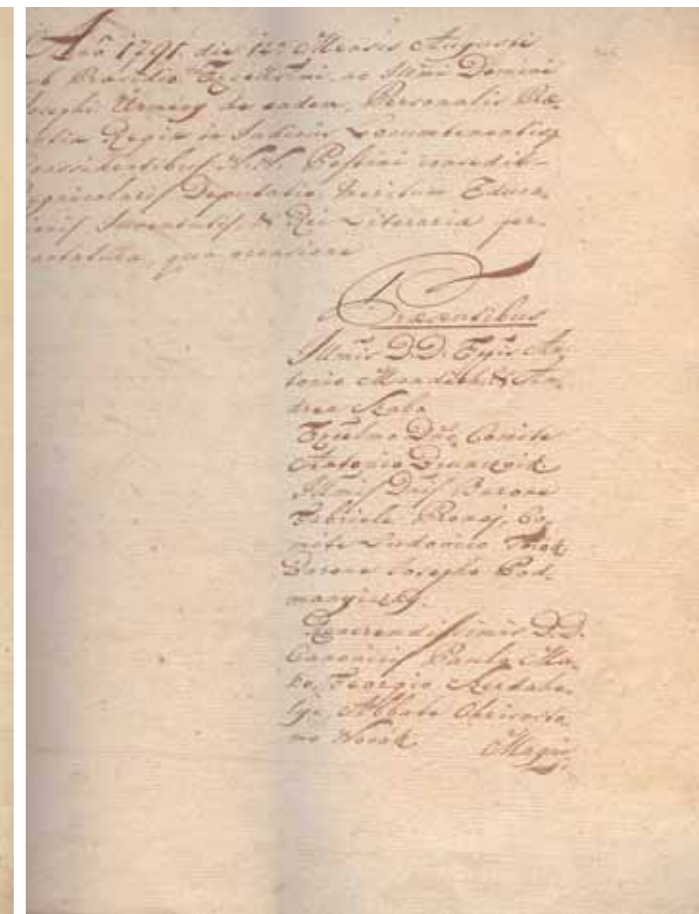 Año 1791. die 12ª Mensis Augusti
Præsidio Excellm̃i, ac Illm̃i Domini
Josephi Ürmeny de eadem, Personalis Præ-
Regiæ in Judiciis Locumtenentis,
Pestini consedit
Regnicolaris Deputatio tractatum Educa-
Juventutis, & Rei Literariæ per-
tractatura, qua occasione
Præsentibus
Illmis D.D. Eppis An-
tonio Mandich & An-
drea Szabo
Excelmo Dño Comite
Antonio Brunczvik
Illmis Dñis Barone
Gabriele Pronay, Co-
mite Ludovico Török
Barone Josepho Pod-
maniczky.
Reverendissimis D.D.
Canonicis Paulo Ma-
ko, Georgio Szerdahe-
lyi, Abbate Chrisosto-
mo Novák Magni-